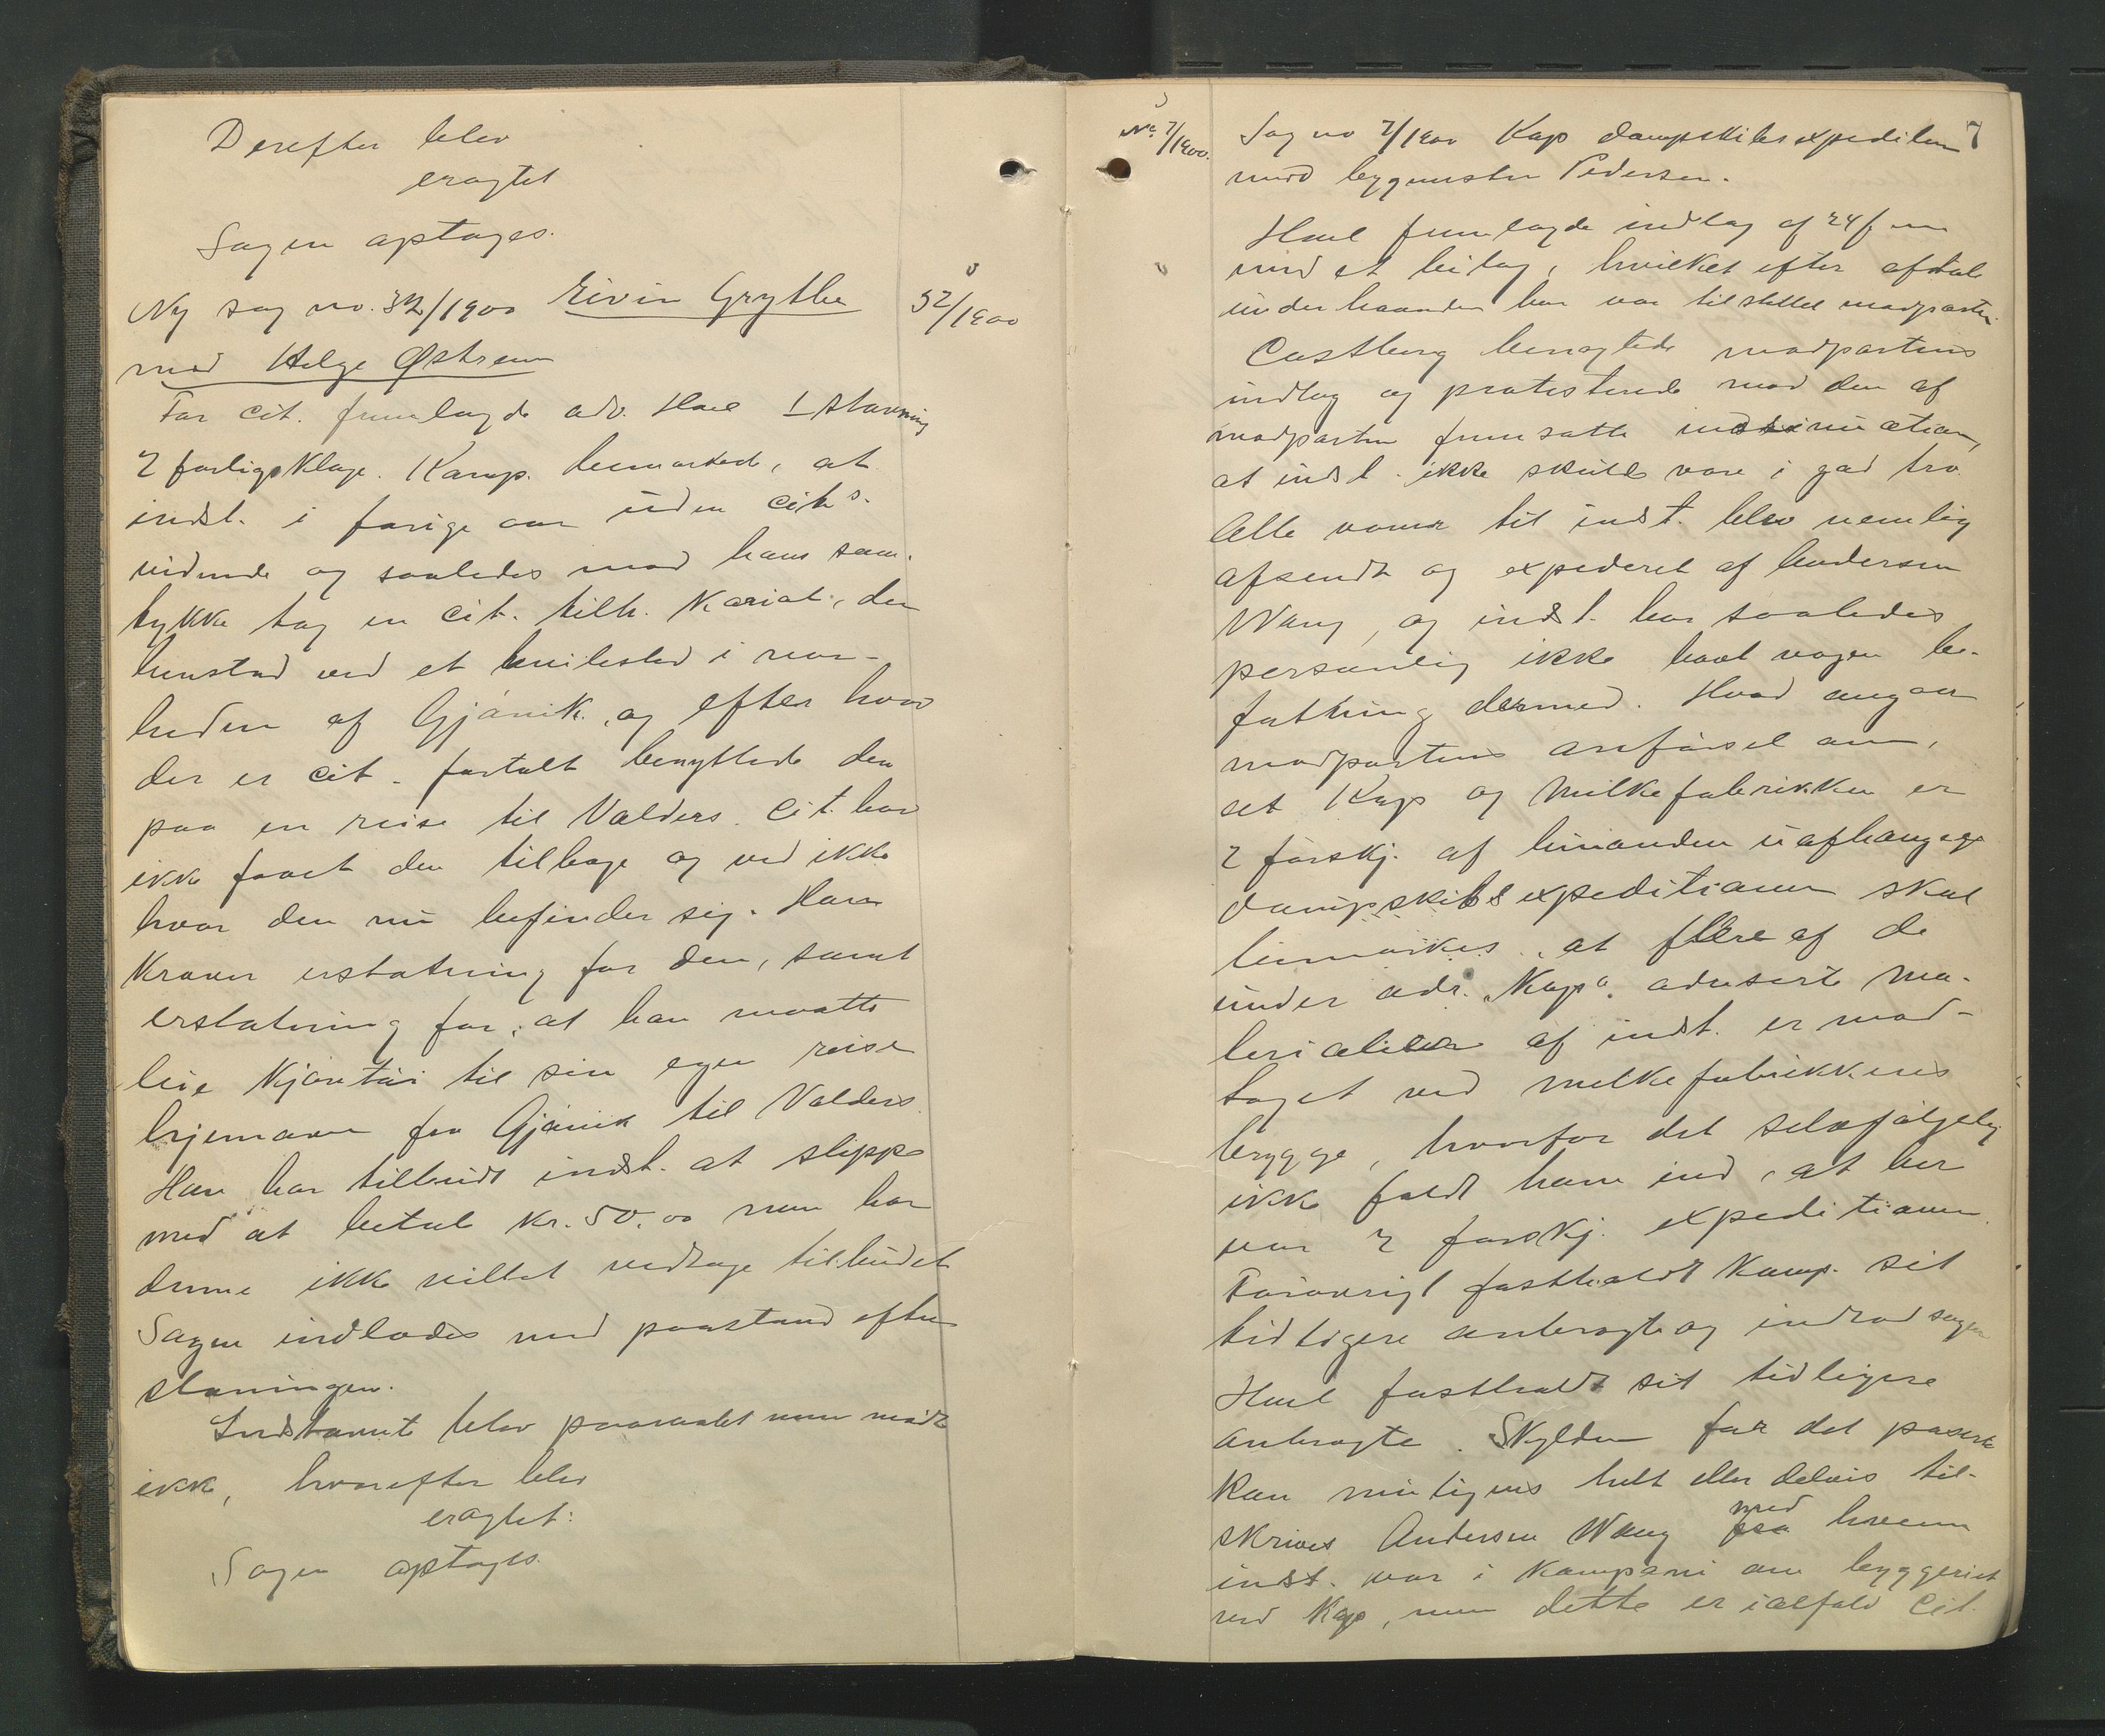 Derefter blev
eragtet
Sagen optages.
Ny sag no. 32/1900 Eivin Grythe
32/1900
mod Helge Østrem
For cit. fremlagde adv. Hoel 1 stævning
2 forligsklage. Komp. bemærked, at
indst. i forige aar uden cits.
vidende og saaledes mod hans sam.
tykke tog en cit. tilh. Kariol, den
henstod ved et hvilested i nær-
heden af Gjøvik, og efter hvad
der er cit. fortalt benyttede den
paa en reise til Valders. Cit. har
ikke faaet den tilbage og ved ikke
hvor den nu befinder sig. Han
kræver erstatning for den, samt
erstatning for, at han maatte
leie Kjøretøi til sin egen reise
hjemover fra Gjøvik til Valders.
Han har tilbudt indst. at slippe
med at betale Kr. 50.00 men har
denne ikke villet vedtage tilbudet
Sagen indlodes med paastand efter
stævningen.
Indstævnte blev paaraabt men mødte
ikke, hvorefter blev
eragtet:
Sagen optages.
7
No. 7/1900.
Sag no 7/1900 Kap dampskibsexpedition
mod bygmester Pedersen.
Hoel fremlagde indlæg af 24/
med et bilag, hvilket efter aftale
underhaanden har vær tilstillet modparten.
Castberg benægtede modpartens
indlæg og protesterede mod den af
modparten fremsatte insinuation,
at indst. ikke skulde være i god tro.
Alle varer til indst. blev nemlig
afsendt og expederet af Andersen
Wang, og indst. har saaledes
personlig ikke havt nogen be-
fatning dermed. Hvad angaar
modpartens anførsel om,
at Kap og Milkefabrikken er
2 forskj. af hinanden uafhængige
dampskibsexpeditioner skal
bemærkes, at flere af de
under adr. "Kap" adreserte ma-
terialier af indst. er mod-
taget ved melkefabrikkens
brygge, hvorfor det selvfølgelig
ikke faldt ham ind, at her
var 2 forskj. expeditioner.
Forøvrigt fastholdt Komp. sit
tidligere anbragte og indlod sagen
Hoel fastholdt sit tidligere
anbragte. Skylden for det paserte
kan muligens helt eller delvis til-
skrives Andersen Wang med hvem
indst. var i kompani om byggeriet
ved Kap, men dette er ialfald cit.